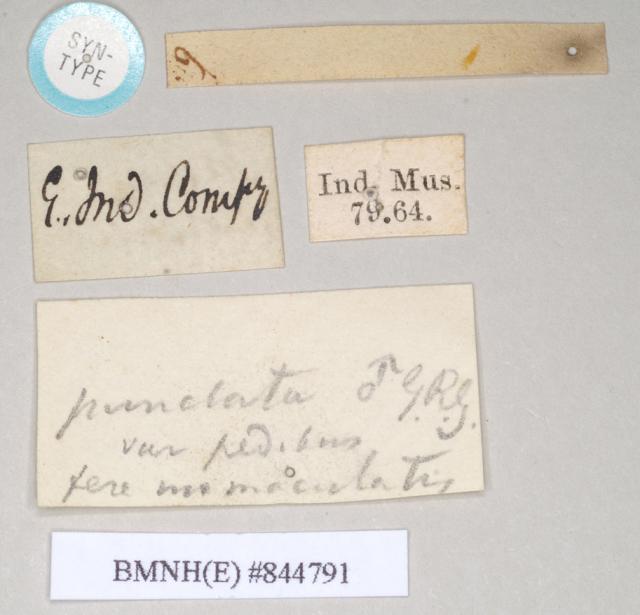 SYN-
TYPE
E. Ind. Compy
Ind. Mus.
79.64.
punctata ♂ G.R.G.
var pedibus
fere immaculatis
BMNH(E) #844791